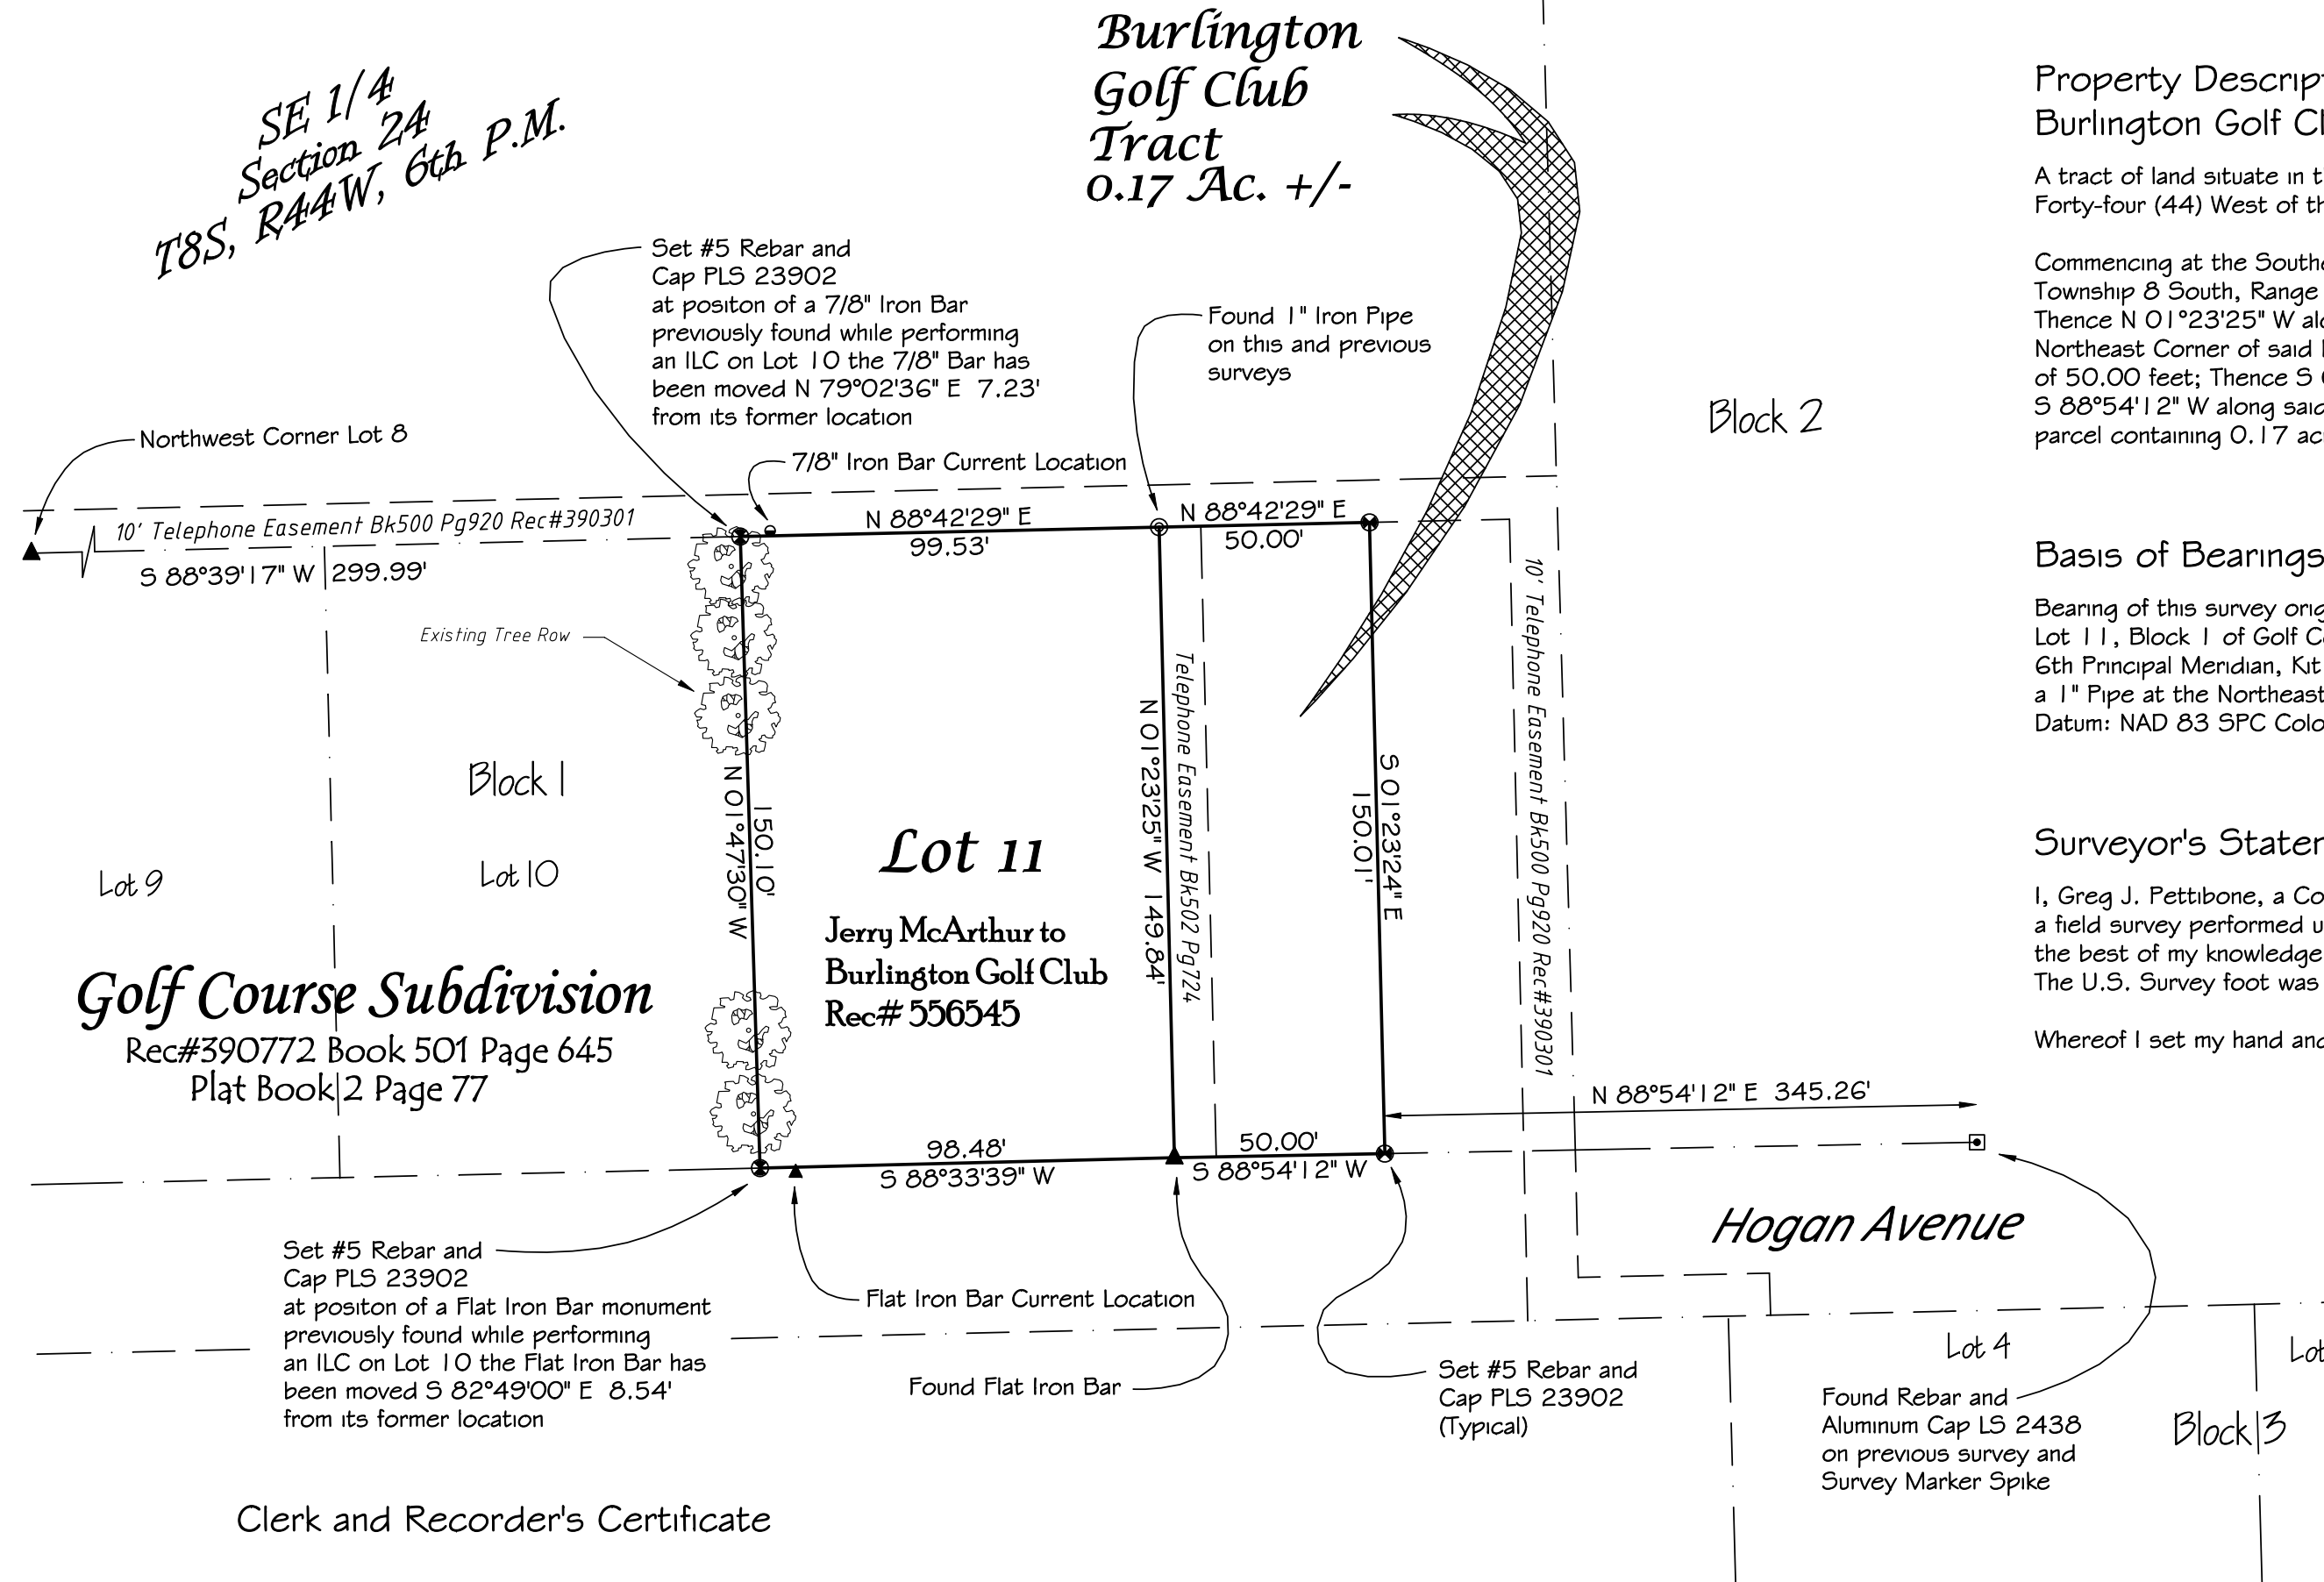 SE 1/4
Section 24
T8S, R44W, 6th P.M.
Burlington
Golf Club
Tract
0.17 Ac. +/-
Set #5 Rebar and
Cap PLS 23902
at positon of a 7/8" Iron Bar
previously found while performing
an ILC on Lot 10 the 7/8" Bar has
been moved N 79°02'36" E 7.23'
from its former location
Found 1" Iron Pipe
on this and previous
surveys
Northwest Corner Lot 8
7/8" Iron Bar Current Location
10' Telephone Easement Bk500 Pg920 Rec#390301
S 88°39'17" W 299.99'
N 88°42'29" E
99.53'
N 88°42'29" E
50.00'
Existing Tree Row
Block 1
Block 2
Lot 9
Lot 10
N 01°47'30" W
150.10'
Lot 11
Jerry McArthur to
Burlington Golf Club
Rec# 556545
N 01°23'25" W 149.84'
Telephone Easement Bk502 Pg724
150.01'
S 01°23'24" E
10' Telephone Easement Bk500 Pg920 Rec#390301
Golf Course Subdivision
Rec#390772 Book 501 Page 645
Plat Book 2 Page 77
N 88°54'12" E 345.26'
98.48'
S 88°33'39" W
50.00'
S 88°54'12" W
Hogan Avenue
Set #5 Rebar and
Cap PLS 23902
at positon of a Flat Iron Bar monument
previously found while performing
an ILC on Lot 10 the Flat Iron Bar has
been moved S 82°49'00" E 8.54'
from its former location
Flat Iron Bar Current Location
Found Flat Iron Bar
Set #5 Rebar and
Cap PLS 23902
(Typical)
Lot 4
Found Rebar and
Aluminum Cap LS 2438
on previous survey and
Survey Marker Spike
Block 3
Lot
Clerk and Recorder's Certificate
Property Descrip
Burlington Golf Cl
A tract of land situate in t
Forty-four (44) West of th
Commencing at the Southe
Township 8 South, Range
Thence N 01°23'25" W alo
Northeast Corner of said
of 50.00 feet; Thence S
S 88°54'12" W along said
parcel containing 0.17 ac
Basis of Bearings
Bearing of this survey orig
Lot 11, Block 1 of Golf C
6th Principal Meridian, Kit
a 1" Pipe at the Northeast
Datum: NAD 83 SPC Colo
Surveyor's Stater
I, Greg J. Pettibone, a Co
a field survey performed u
the best of my knowledge
The U.S. Survey foot was
Whereof I set my hand and